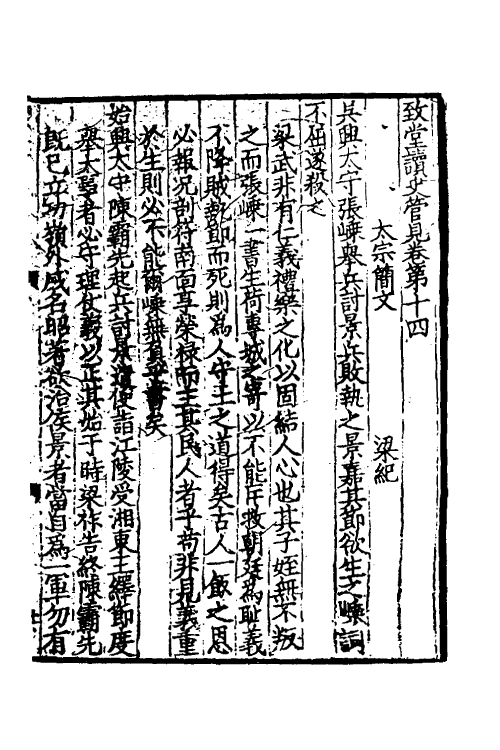 致堂讀史管見卷第十四
太宗簡文　梁紀
吳興太守張嵊舉兵討景兵敗執之景嘉其節欲生之嵊詞
不屈遂殺之
梁武非有仁義禮樂之化以固結人心也其子姪無不叛
之而張嵊一書生荷專城之寄以不能匡救朝廷為恥義
不降賊抗節而死則為人守土之道得矣古人一飯之恩
必報況剖符南面享榮祿而主其民人者乎苟非見義重
於生則必不能爾嵊無負平書矣
始興太守陳霸先起兵討景遣使詣江陵受湘東王繹節度
舉大事者必守理仗義以正其始于時梁祚告終陳霸先
既已立功嶺外威名昭著欲治侯景者當自為一軍勿有